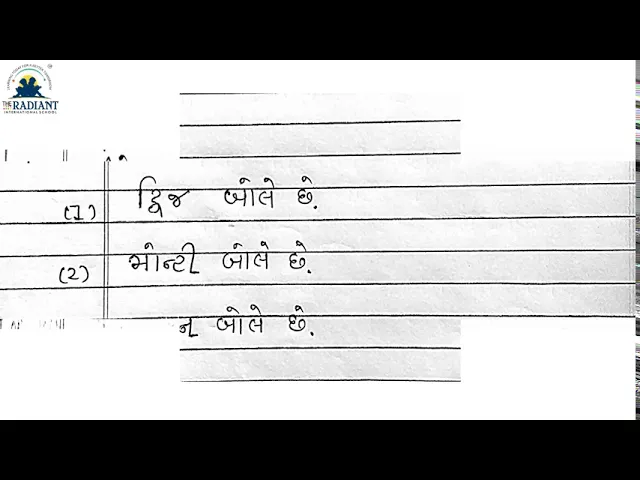 THE RADIANT
INTERNATIONAL SCHOOL
(1) દ્વિજ બોલે છે.
(2) મોન્ટી બોલે છે.
ન બોલે છે.